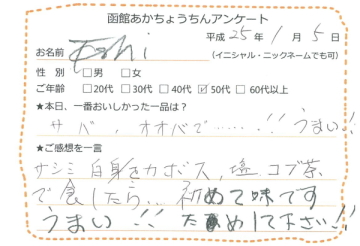 函館あかちょうちんアンケート
平成 25 年 1 月 5 日
お名前 Toshi (イニシャル・ニックネームでも可)
性 別 □男 □女
ご年齢 □20代 □30代 □40代 ☑50代 □60代以上
★本日、一番おいしかった一品は?
サバ、オオバで……!! うまい!
★ご感想を一言
サシミ 白身をカボス、塩 コブ茶
で食したら… 初めて味です
うまい!! ためして下さい!!